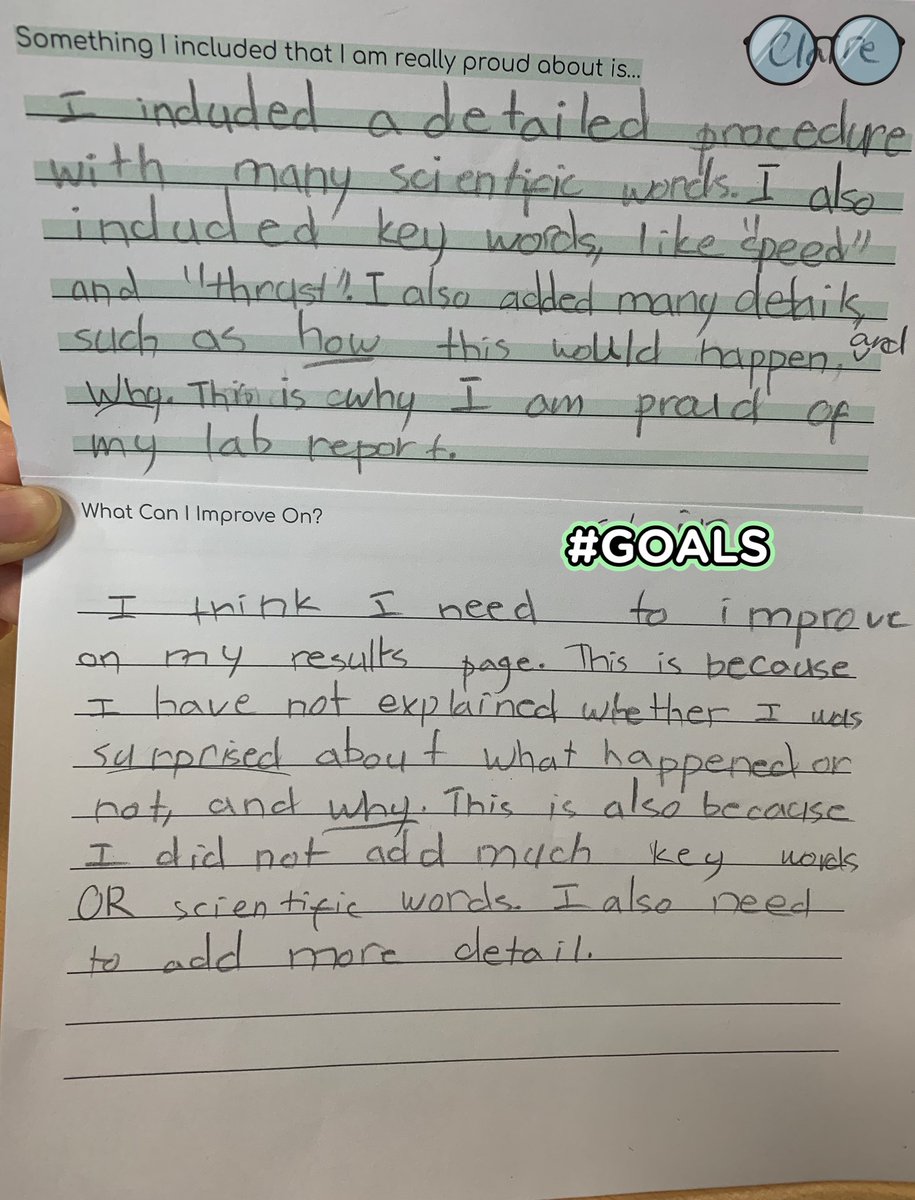 Something I included that I am really proud about is...
Claire
I included a detailed procedure
with many scientific words. I also
included key words, like "speed"
and "thrust". I also added many details,
such as how this would happen, and
why. This is why I am proud of
my lab report.
What Can I Improve On?
#GOALS
I think I need to improve
on my results page. This is because
I have not explained whether I was
surprised about what happened or
not, and why. This is also because
I did not add much key words
OR scientific words. I also need
to add more detail.